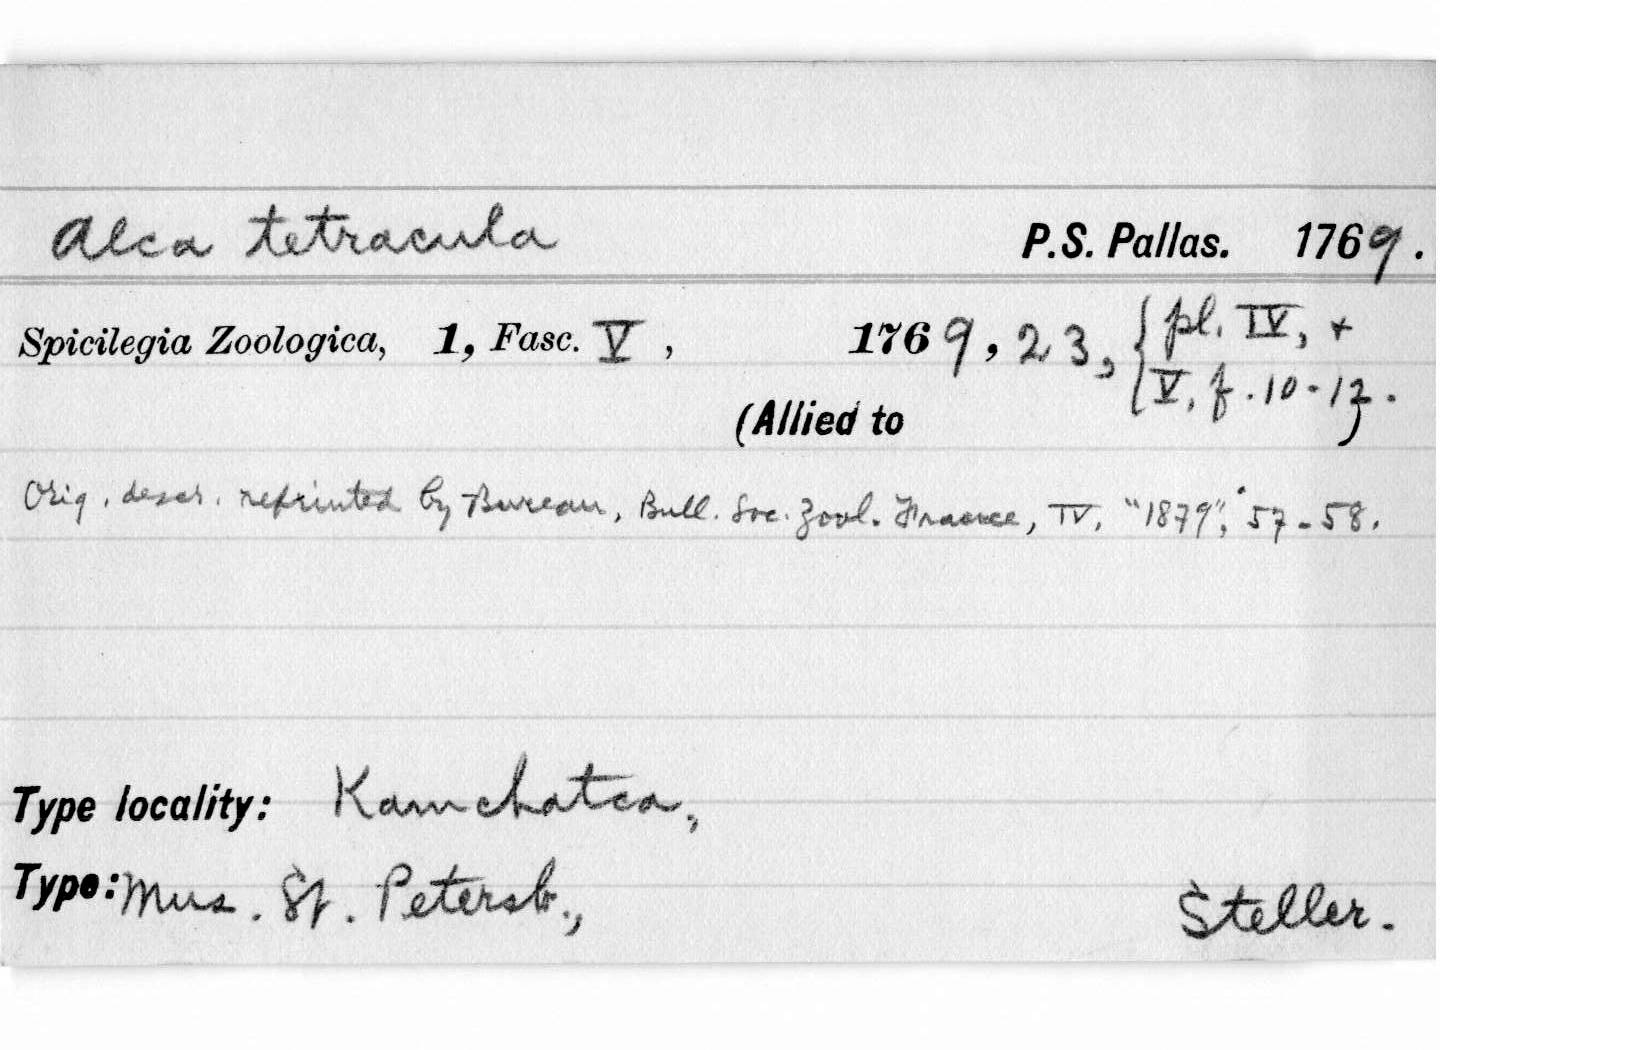 Alca tetracula P.S. Pallas. 1769.
Spicilegia Zoologica, 1, Fasc. V, 1769, 23, { pl. IV, +
V, f. 10-12.
(Allied to )
Orig. descr. reprinted by Bureau, Bull. Soc. Zool. France, IV, "1879", 57-58.
Type locality: Kamchatca,
Type: Mus. St. Petersb., Steller.